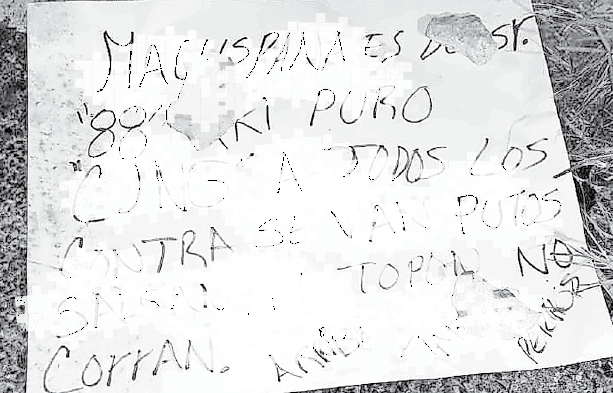 MACUSPANA ES DE ST.
"88" AKI PURO
"CJNG" A TODOS LOS
CONTRA SE VAN PUTOS
TOPON NO
CORRAN.
PERROS